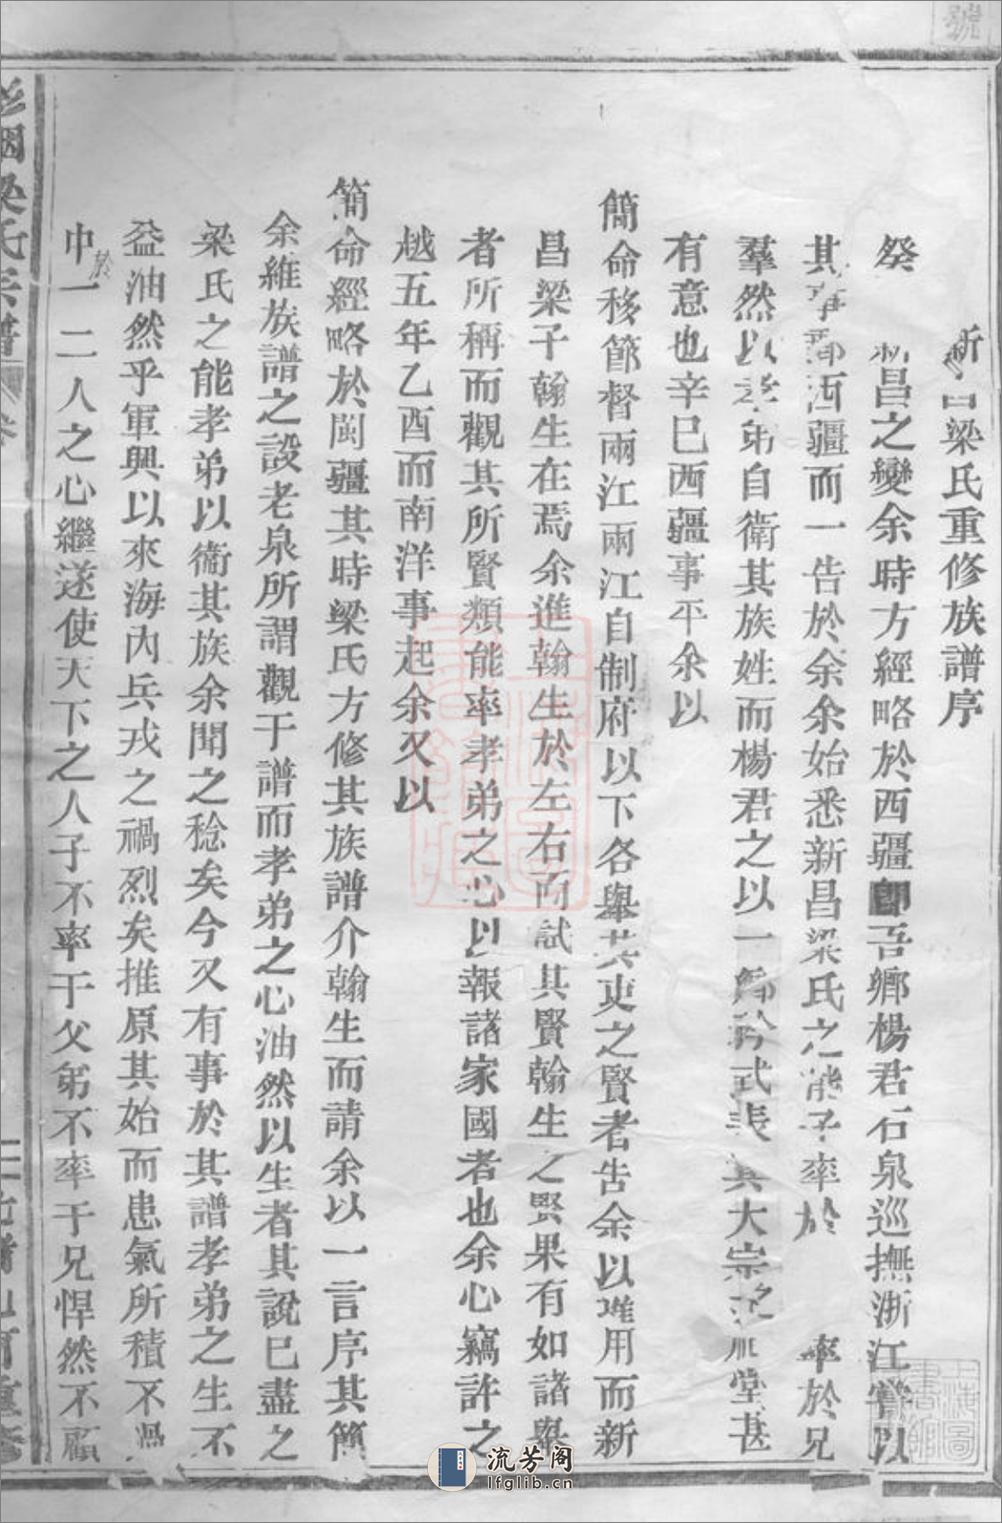 新昌梁氏重修族譜序
癸 昌之變余時方經略於西疆卽吾鄉楊君石泉巡撫浙江嘗以
其事郵西疆而一告於余余始悉新昌梁氏之能子率於 率於兄
羣然以孝弟自衛其族姓而楊君之以一鄉 式表其大宗之 堂甚
有意也辛巳西疆事平余以
簡命移節督兩江兩江自制府以下各舉其吏之賢者告余以進用而新
昌梁子翰生在焉余進翰生於左右而試其賢翰生之賢果有如諸舉
者所稱而觀其所賢類能率孝弟之心以報諸家國者也余心竊許之
越五年乙酉而南洋事起余又以
簡命經略於閩疆其時梁氏方修其族譜介翰生而請余以一言序其簡
余維族譜之設老泉所謂觀于譜而孝弟之心油然以生者其說已盡之
梁氏之能孝弟以衞其族余聞之稔矣今又有事於其譜孝弟之生不
益油然乎軍興以來海內兵戎之禍烈矣推原其始而患氣所積不過
中於一二人之心繼遂使天下之人子不率于父弟不率于兄悍然不顧
梁氏宗譜
卷
號
流芳阁
lfglib.cn